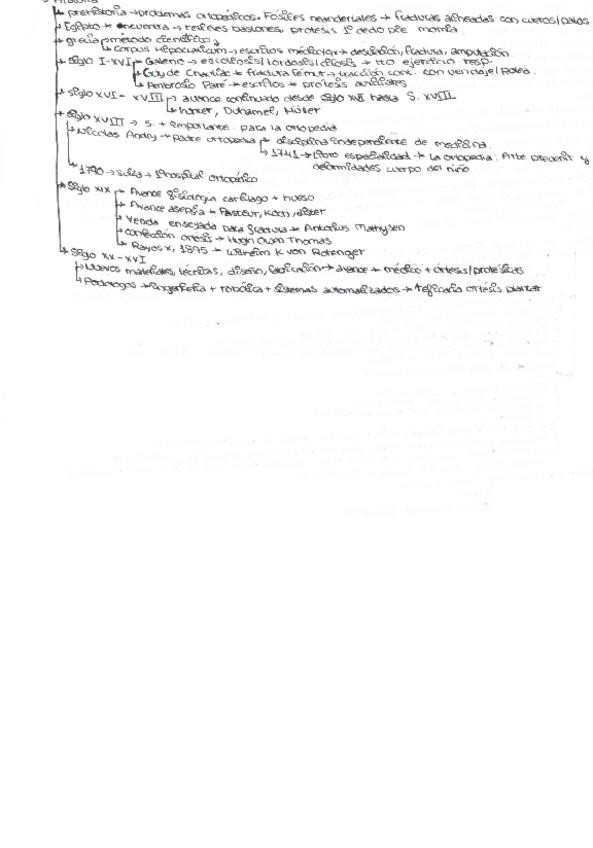 → prehistoria → problemas ortopédicos. Fósiles neandertales → fracturas alineadas con cueros/palos
→ Egipto → encuentra → relieves bastones, prótesis 1º dedo pie momia.
→ grecia → método científico
↳ Corpus Hipocraticum → escritos médicos → desviación, fractura, amputación
→ Siglo I-XVI → Galeno → escoliosis/lordosis/cifosis → tto ejercicio resp.
→ Guy de Chauliac → fractura fémur → tracción cont. con vendaje/polea.
→ Ambrosio Paré → escritos → prótesis auxiliares
→ Siglo XVI - XVIII → avance continuado desde siglo XVI hasta S. XVIII
↳ Hunter, Duhamel,
→ Siglo XVIII → S. + importante para la ortopedia
→ Nicolas Andry → padre ortopedia → disciplina independiente de medicina.
↳ 1741 → libro especialidad → la ortopedia: Arte prevenir y
deformidades cuerpo del niño
↳ 1790 → Suiza → 1º hospital ortopédico
→ Siglo XIX → Avance fisiología cartílago + hueso
→ Avance asepsia → Pasteur, Koch, Lister
→ Venda enyesada para fractura → Antonius Mathysen
→ confección ortesis → Hugh Owen Thomas
→ Rayos X, 1895 → Wilhelm K von
→ Siglo XX - XXI
→ Nuevos materiales, técnicas, diseño, fabricación → avance → médico + órtesis/protésicas
↳ Podólogos → ingeniería + robótica + sistemas automatizados → ortesis plantar